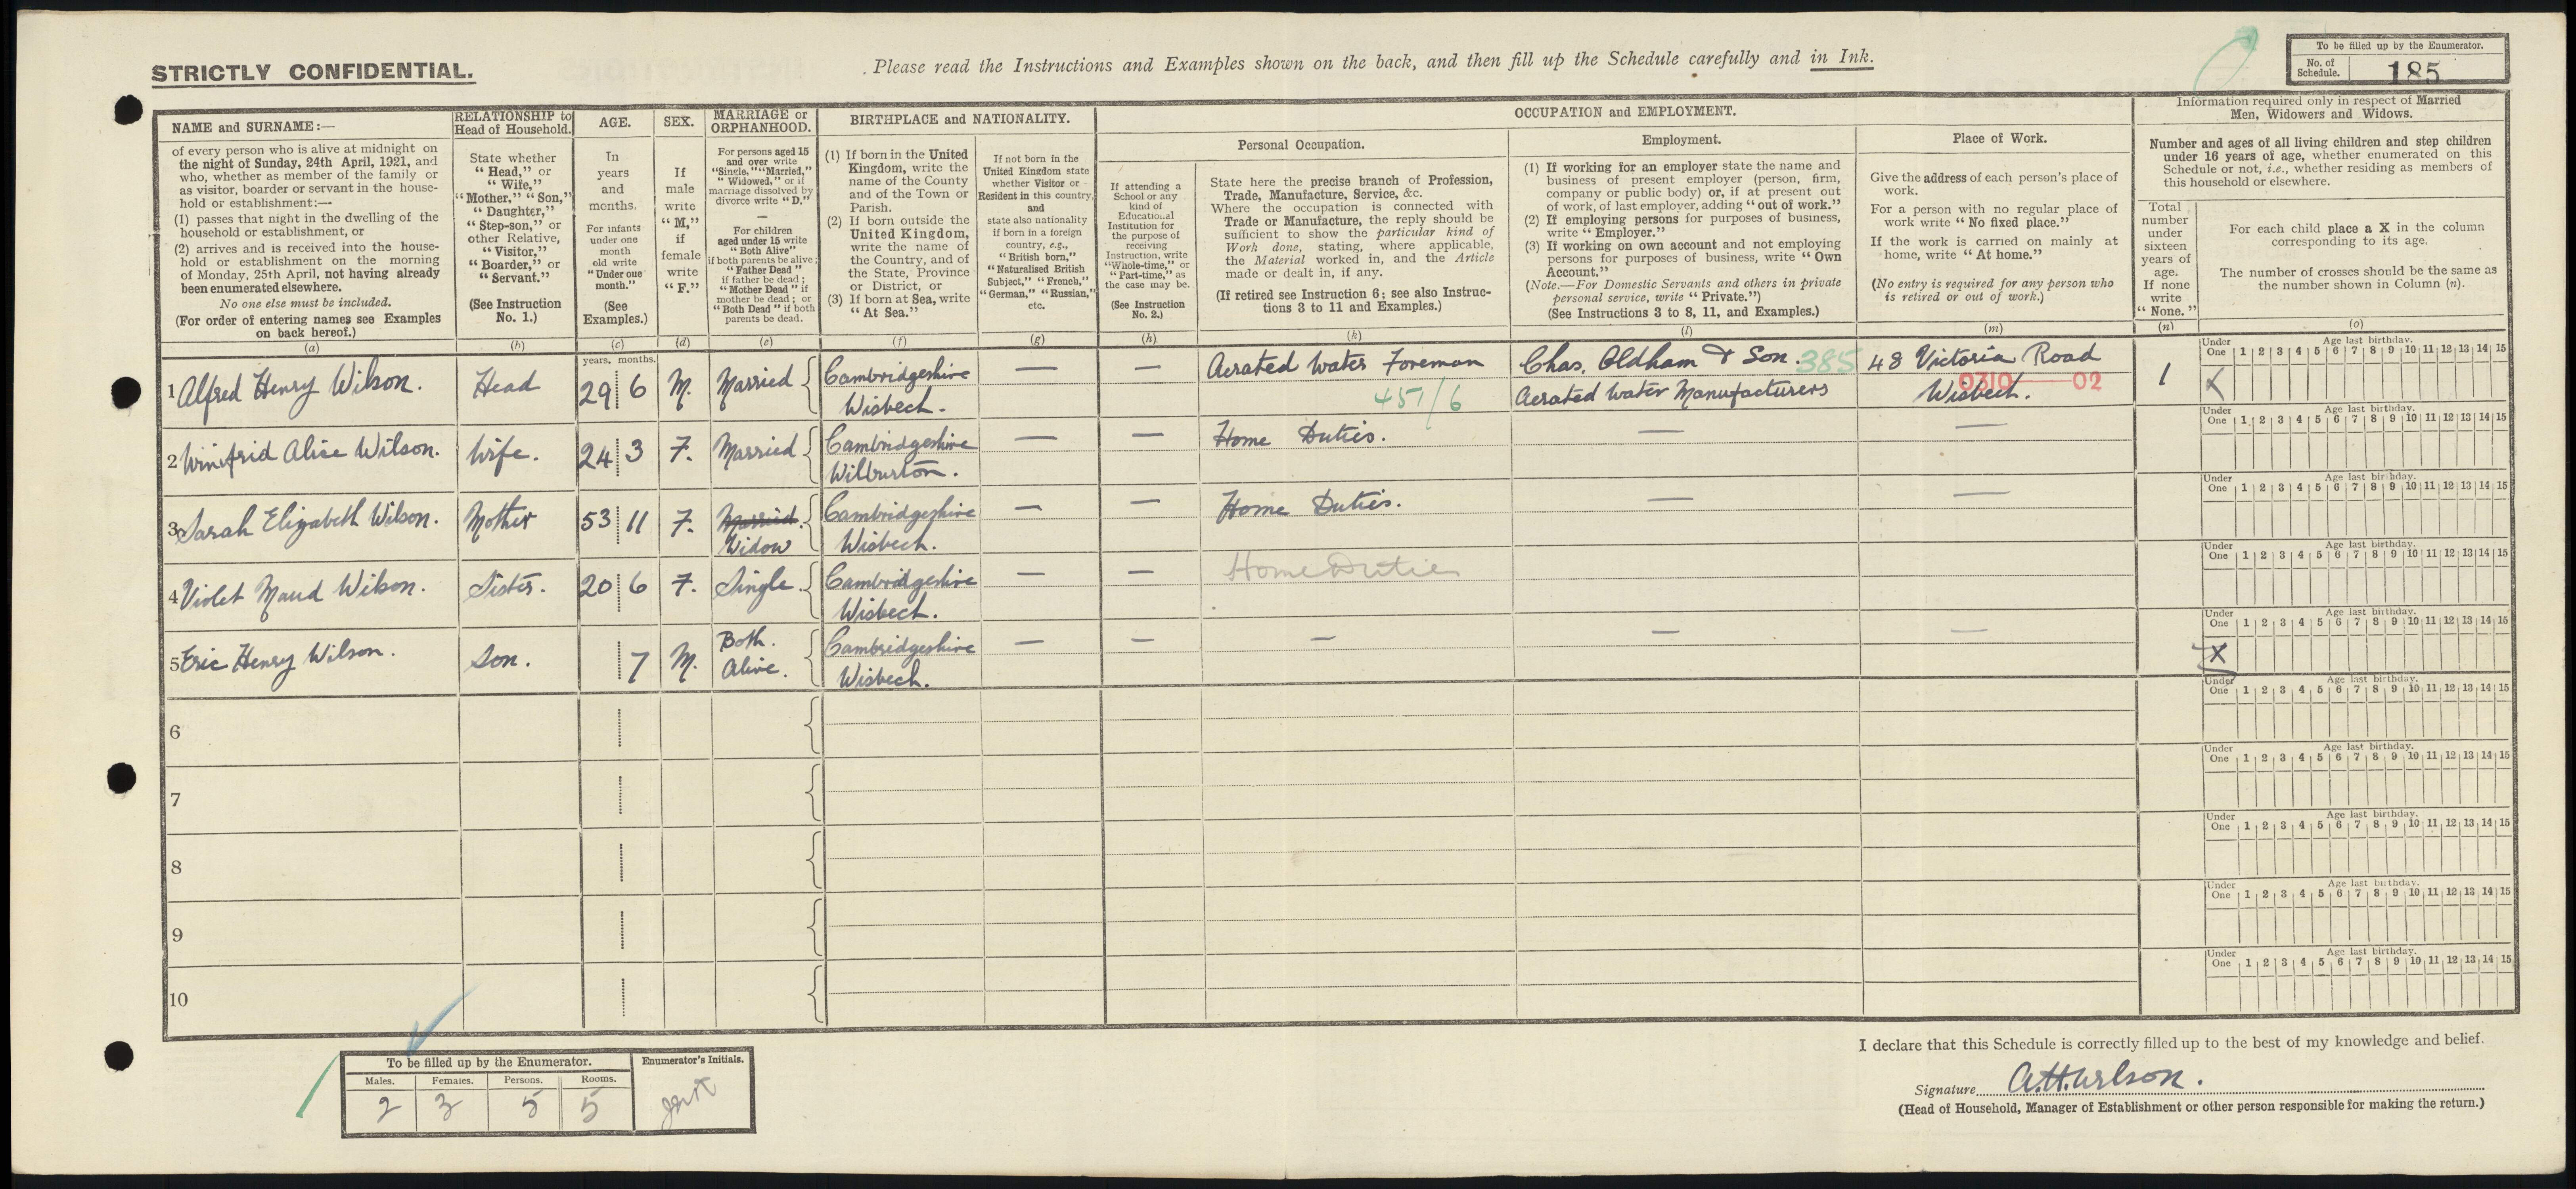 STRICTLY CONFIDENTIAL.
Please read the Instructions and Examples shown on the back, and then fill up the Schedule carefully and in Ink.
To be filled up by the Enumerator.
No. of Schedule. 185
NAME and SURNAME:—
of every person who is alive at midnight on
the night of Sunday, 24th April, 1921, and
who, whether as member of the family or
as visitor, boarder or servant in the house-
hold or establishment:—
(1) passes that night in the dwelling of the
household or establishment, or
(2) arrives and is received into the house-
hold or establishment on the morning
of Monday, 25th April, not having already
been enumerated elsewhere.
No one else must be included.
(For order of entering names see Examples
on back hereof.)
(a)
RELATIONSHIP to
Head of Household.
State whether
"Head," or
"Wife,"
"Mother," "Son,"
"Daughter,"
"Step-son," or
other Relative,
"Visitor,"
"Boarder," or
"Servant."
(See Instruction
No. 1.)
(b)
AGE.
In
years
and
months.
For infants
under one
month
old write
"Under one
month."
(See
Examples.)
(c)
SEX.
If
male
write
"M,"
if
female
write
"F."
(d)
MARRIAGE or
ORPHANHOOD.
For persons aged 15
and over write
"Single," "Married,"
"Widowed," or if
marriage dissolved by
divorce write "D."
—
For children
aged under 15 write
"Both Alive"
if both parents be alive;
"Father Dead"
if father be dead;
"Mother Dead" if
mother be dead; or
"Both Dead" if both
parents be dead.
(e)
BIRTHPLACE and NATIONALITY.
(1) If born in the United
Kingdom, write the
name of the County
and of the Town or
Parish.
(2) If born outside the
United Kingdom,
write the name of
the Country, and of
the State, Province
or District, or
(3) If born at Sea, write
"At Sea."
(f)
If not born in the
United Kingdom state
whether Visitor or
Resident in this country,
and
state also nationality
if born in a foreign
country, e.g.,
"British born,"
"Naturalised British
Subject," "French,"
"German," "Russian,"
etc.
(g)
OCCUPATION and EMPLOYMENT.
Personal Occupation.
If attending a
School or any
kind of
Educational
Institution for
the purpose of
receiving
Instruction, write
"Whole-time," or
"Part-time," as
the case may be.
(See Instruction
No. 2.)
(h)
State here the precise branch of Profession,
Trade, Manufacture, Service, &c.
Where the occupation is connected with
Trade or Manufacture, the reply should be
sufficient to show the particular kind of
Work done, stating, where applicable,
the Material worked in, and the Article
made or dealt in, if any.
(If retired see Instruction 6; see also Instruc-
tions 3 to 11 and Examples.)
(k)
Employment.
(1) If working for an employer state the name and
business of present employer (person, firm,
company or public body) or, if at present out
of work, of last employer, adding "out of work."
(2) If employing persons for purposes of business,
write "Employer."
(3) If working on own account and not employing
persons for purposes of business, write "Own
Account."
(Note.—For Domestic Servants and others in private
personal service, write "Private.")
(See Instructions 3 to 8, 11, and Examples.)
(l)
Place of Work.
Give the address of each person's place of
work.
For a person with no regular place of
work write "No fixed place."
If the work is carried on mainly at
home, write "At home."
(No entry is required for any person who
is retired or out of work.)
(m)
Information required only in respect of Married
Men, Widowers and Widows.
Number and ages of all living children and step children
under 16 years of age, whether enumerated on this
Schedule or not, i.e., whether residing as members of
this household or elsewhere.
Total
number
under
sixteen
years of
age.
If none
write
"None."
(n)
For each child place a X in the column
corresponding to its age.
The number of crosses should be the same as
the number shown in Column (n).
(o)
years. months.
Under One Age last birthday.
1 2 3 4 5 6 7 8 9 10 11 12 13 14 15
1 Alfred Henry Wilson. Head 29 6 M. Married Cambridgeshire Wisbech. — — Aerated Water Foreman 451/6 Chas. Oldham & Son. 385 Aerated Water Manufacturers 48 Victoria Road Wisbech. 0310 02 1 X
Under One Age last birthday.
1 2 3 4 5 6 7 8 9 10 11 12 13 14 15
2 Winifrid Alice Wilson. Wife. 24 3 F. Married Cambridgeshire Wilburton. — — Home Duties. — —
Under One Age last birthday.
1 2 3 4 5 6 7 8 9 10 11 12 13 14 15
3 Sarah Elizabeth Wilson. Mother 53 11 F. Married Widow Cambridgeshire Wisbech. — — Home Duties. — —
Under One Age last birthday.
1 2 3 4 5 6 7 8 9 10 11 12 13 14 15
4 Violet Maud Wilson. Sister. 20 6 F. Single. Cambridgeshire Wisbech. — — Home Duties
Under One Age last birthday.
1 2 3 4 5 6 7 8 9 10 11 12 13 14 15
5 Eric Henry Wilson. Son. 7 M. Both. Alive. Cambridgeshire Wisbech. — — — — — X
Under One Age last birthday.
1 2 3 4 5 6 7 8 9 10 11 12 13 14 15
6
Under One Age last birthday.
1 2 3 4 5 6 7 8 9 10 11 12 13 14 15
7
Under One Age last birthday.
1 2 3 4 5 6 7 8 9 10 11 12 13 14 15
8
Under One Age last birthday.
1 2 3 4 5 6 7 8 9 10 11 12 13 14 15
9
Under One Age last birthday.
1 2 3 4 5 6 7 8 9 10 11 12 13 14 15
10
Under One Age last birthday.
1 2 3 4 5 6 7 8 9 10 11 12 13 14 15
To be filled up by the Enumerator.
Enumerator's Initials.
Males. Females. Persons. Rooms.
2 3 5 5
I declare that this Schedule is correctly filled up to the best of my knowledge and belief.
Signature A.H. Wilson.
(Head of Household, Manager of Establishment or other person responsible for making the return.)